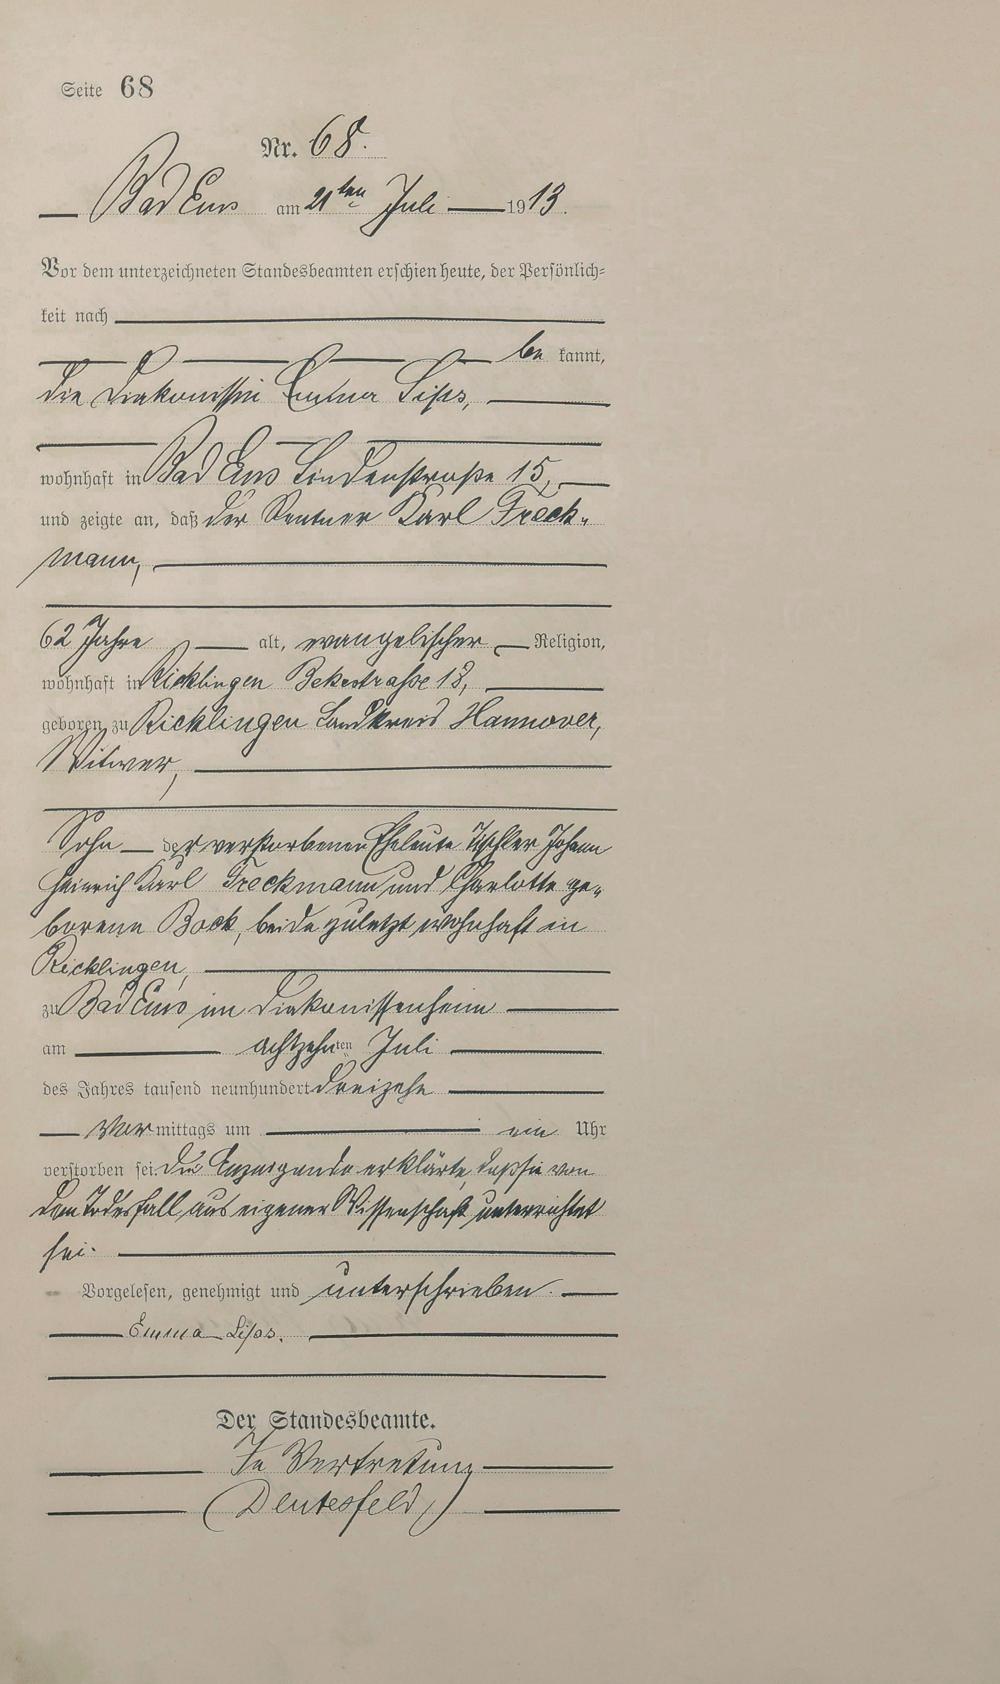 Seite 68
Nr. 68.
Bad Ems am 21ten Juli 1913.
Vor dem unterzeichneten Standesbeamten erschien heute, der Persönlich=
keit nach
be kannt,
die Diakonissin Emma Lips,
wohnhaft in Bad Ems Lindenstraße 15,
und zeigte an, daß der Rentner Karl Freck-
mann,
62 Jahre alt, evangelischer Religion,
wohnhaft in Ricklingen Bekestraße 18,
geboren zu Ricklingen Landkreis Hannover,
Witwer,
Sohn der verstorbenen Eheleute Tischler Johann
Heinrich Karl Freckmann und Charlotte ge-
borene Bock, beide zuletzt wohnhaft in
Ricklingen,
zu Bad Ems im Diakonissenheim
am achtzehnten Juli
des Jahres tausend neunhundert dreizehn
Vormittags um ein Uhr
verstorben sei. Die Anzeigende erklärte, daß sie von
dem Todesfall aus eigener Wissenschaft unterrichtet
sei.
Vorgelesen, genehmigt und unterschrieben.
Emma Lips.
Der Standesbeamte.
In Vertretung
(Dentesfeld)